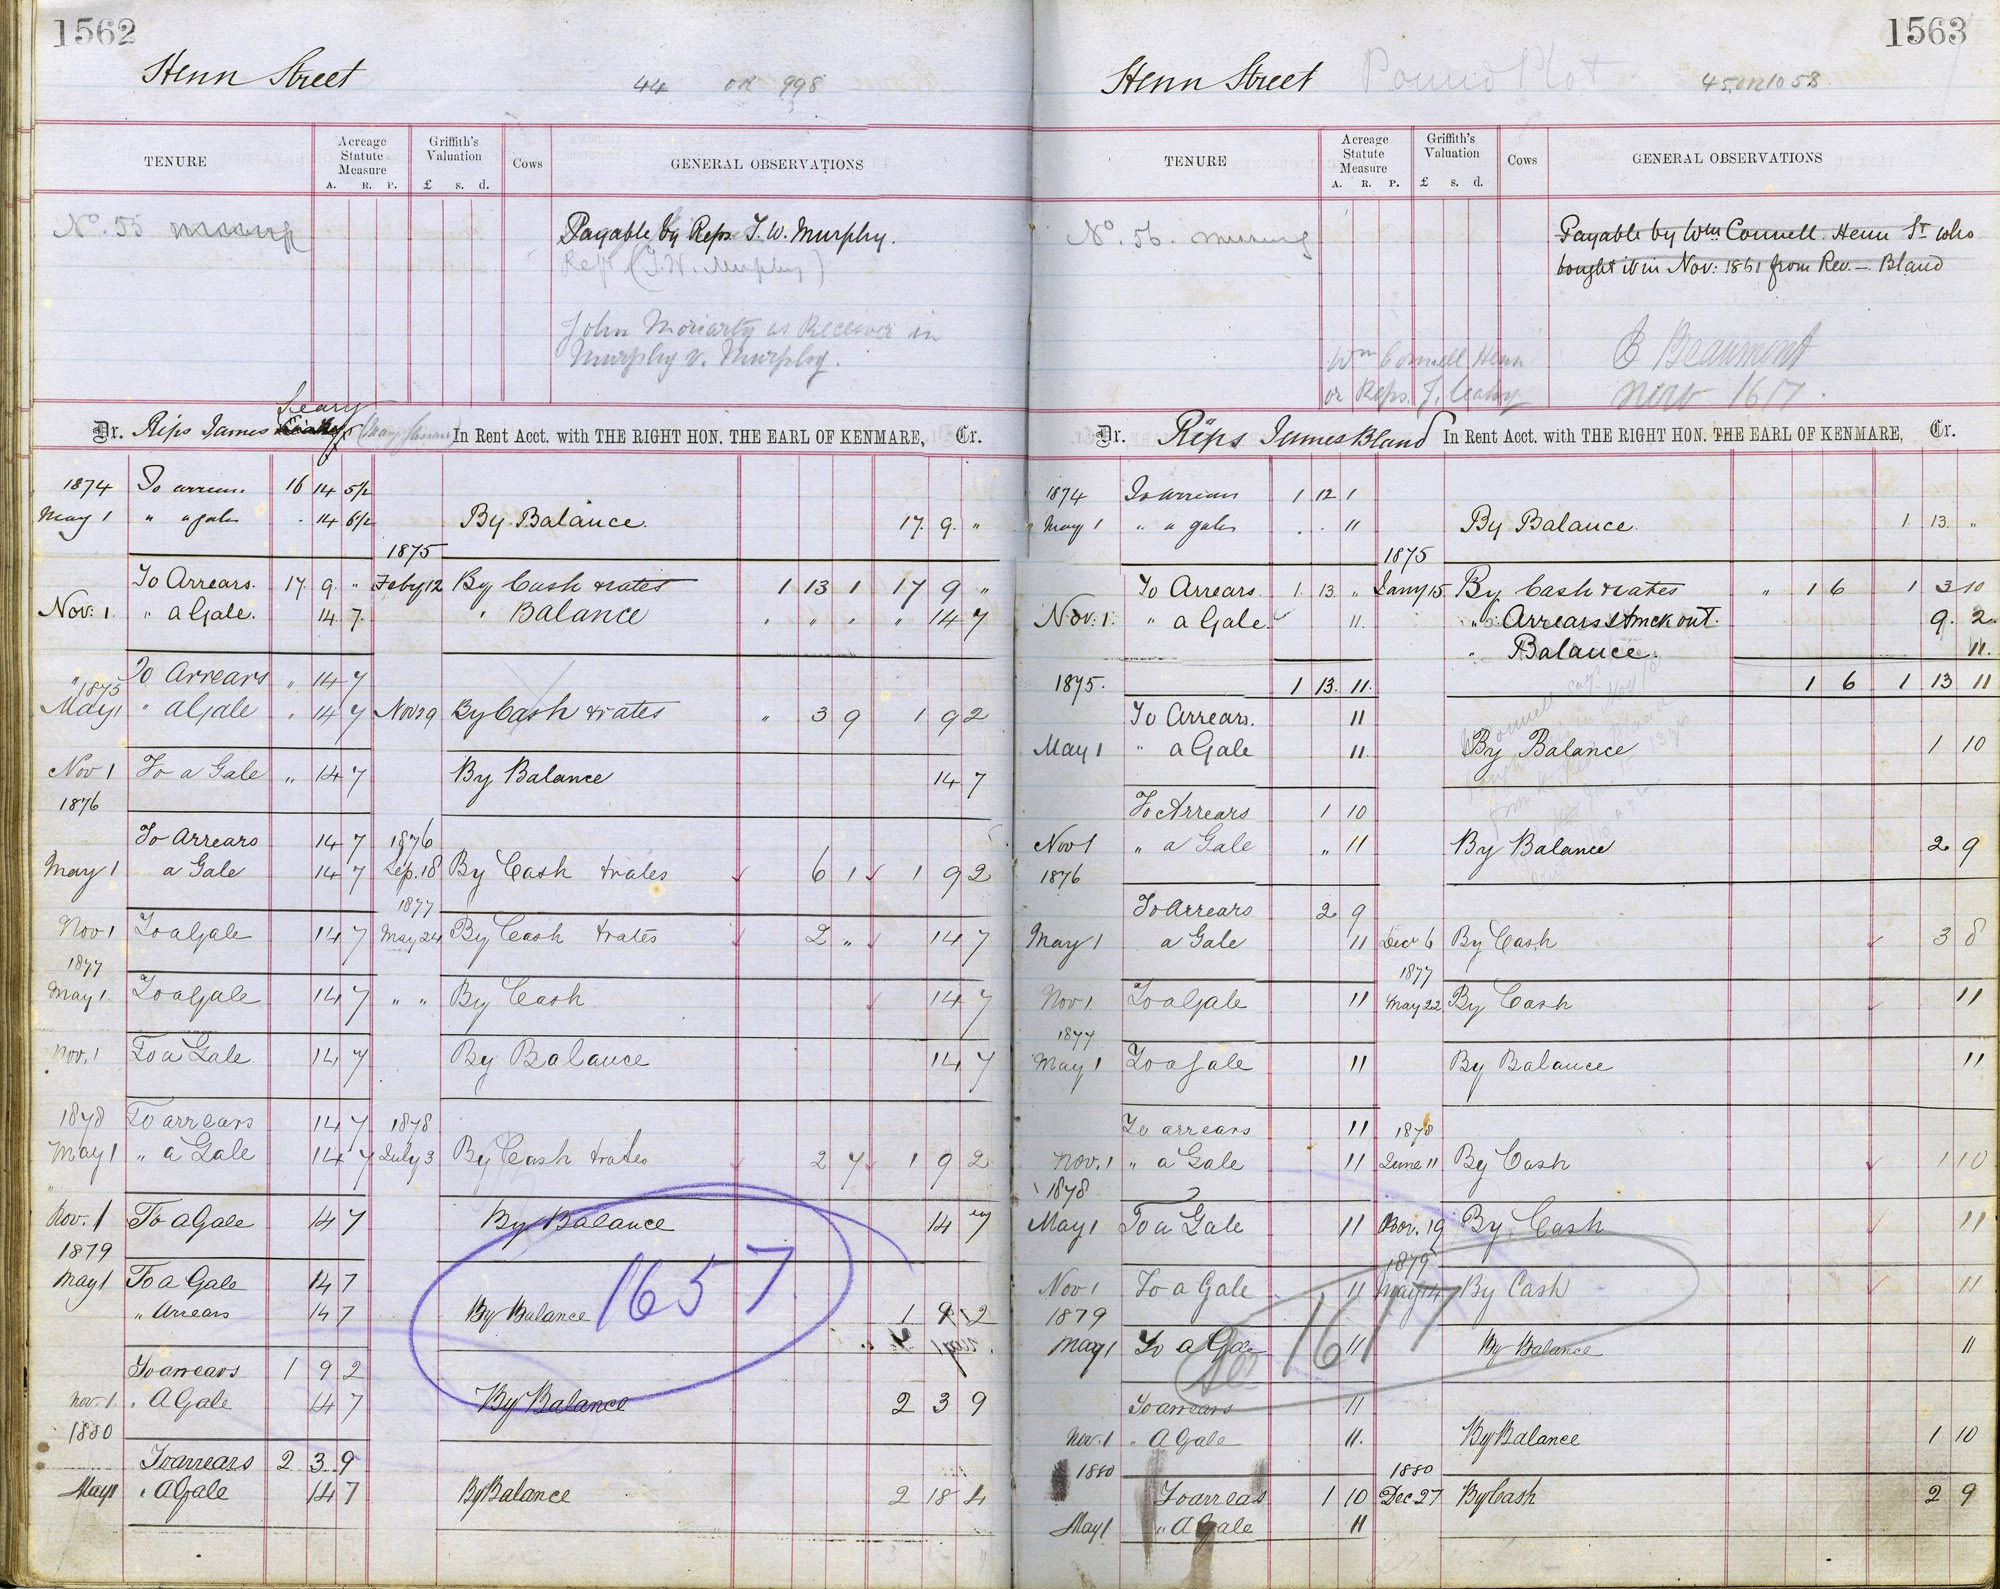 1562
Henn Street
44 on 998
TENURE
Acreage Statute Measure
A. R. P.
Griffith's Valuation
£ s. d.
Cows
GENERAL OBSERVATIONS
No. 55
Payable by Reps J. W. Murphy.
Reps (J. W. Murphy)
John Moriarty as Receiver in
Murphy v. Murphy.
Dr. Reps James Leary In Rent Acct. with THE RIGHT HON. THE EARL OF KENMARE, Cr.
1874 To arrears 16 14 5½
May 1 " a gale . 14 6½ By Balance. 17. 9. "
1875
To Arrears. 17. 9. " Feby 12 By Cash & rates 1 13 1 17 9 "
Nov. 1. " a Gale. 14 7. " Balance " " " " 14 7
" To Arrears " 14 7
1875
May 1 " a Gale " 14 7 Nov 29 By Cash & rates " 3 9 1 9 2
Nov 1 To a Gale " 14 7 By Balance 14 7
1876
To Arrears 14 7 1876
May 1 a Gale 14 7 Sep. 18 By Cash & rates 6 1 1 9 2
1877
Nov 1 To a Gale 14 7 May 24 By Cash & rates 2 " 14 7
1877
May 1 To a Gale 14 7 " " By Cash 14 7
Nov. 1 To a Gale 14 7 By Balance 14 7
1878 To arrears 14 7 1878
May 1 " a Gale 14 7 July 3 By Cash & rates 2 7 1 9 2
Nov. 1 To a Gale 14 7 By Balance 14 7
1879
May 1 To a Gale 14 7
" Arrears 14 7 By Balance 1 9 2
1657
To arrears 1 9 2
Nov. 1. " A Gale 14 7 By Balance 2 3 9
1880
To arrears 2 3 9
May 1 " A Gale 14 7 By Balance 2 18 4
1563
Henn Street Pound Plot 45 on 1058
TENURE
Acreage Statute Measure
A. R. P.
Griffith's Valuation
£ s. d.
Cows
GENERAL OBSERVATIONS
No. 56.
Payable by Wm Connell Henn St. who
bought it in Nov: 1861 from Rev. — Bland
Wm Connell Henn
or Reps. J. Leahy
B Beaumont
now 1617.
Dr. Reps James Bland In Rent Acct. with THE RIGHT HON. THE EARL OF KENMARE, Cr.
1874 To arrears 1 12 1
May 1 " a gale . . 11 By Balance. 1. 13. "
1875
To Arrears 1. 13. " Jany 15 By Cash & rates " 1 6 1 3 10
Nov. 1. " a Gale 11. " Arrears struck out. 9. 2.
" Balance. 11.
1875. 1 13. 11. 1 6 1 13 11
To Arrears. 11
May 1 " a Gale 11. By Balance 1 10
To Arrears 1 10
Nov 1 " a Gale " 11 By Balance 2 9
1876
To Arrears 2 9
May 1 a Gale 11 Decr 6 By Cash 3 8
1877
Nov 1. To a Gale 11 May 22 By Cash 11
1877
May 1 To a Gale 11 By Balance 11
To arrears 11 1878
Nov. 1 " a Gale 11 June 11 By Cash 1 10
1878
May 1 To a Gale 11 Nov. 19 By Cash 11
1879
Nov 1 To a Gale 11 May 14 By Cash 11
1879
May 1 To a Gale 11 By Balance 11
See 1617
To arrears 11
Nov. 1 " A Gale 11. By Balance 1 10
1880 1880
To arrears 1 10 Dec. 27 By Cash 2 9
May 1 " A Gale 11